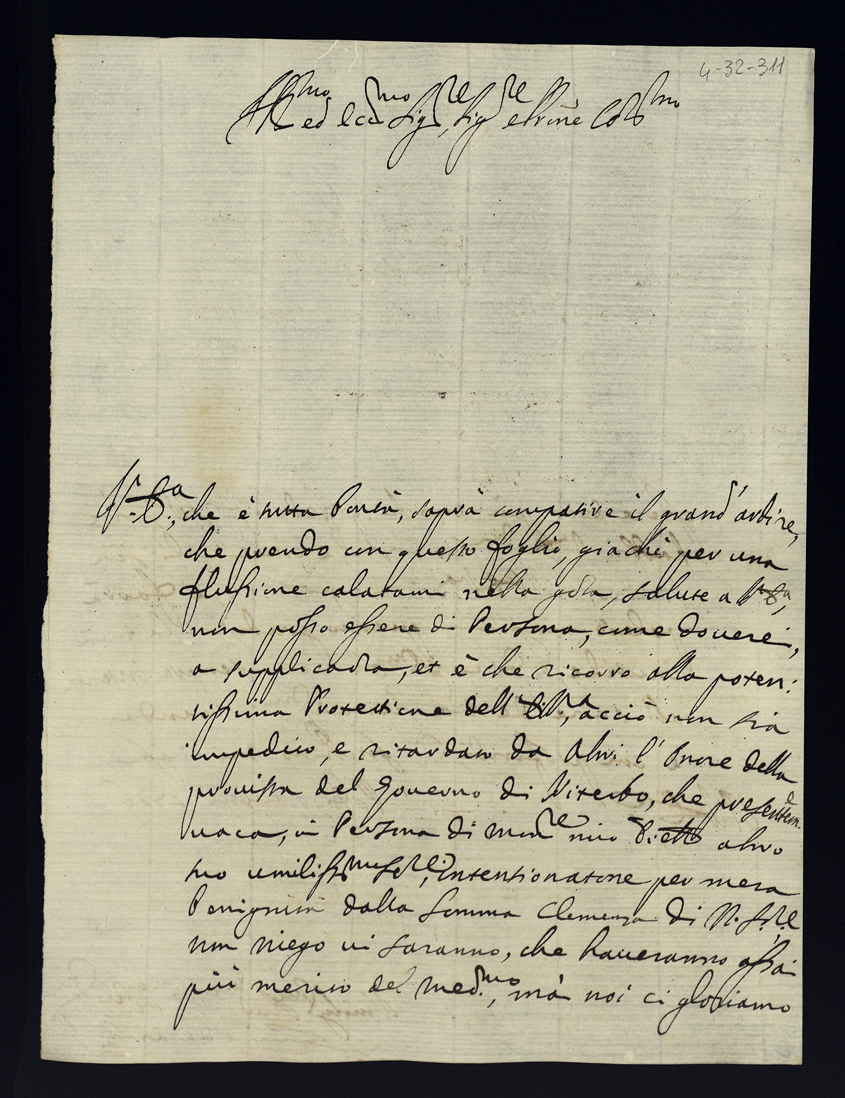 4-32-311
Ill.mo ed Ecc.mo Sig.re, Sig.re e P.rone Col.mo
V.E.a, che è tutta Bontà, saprà compatire il grand'ardire,
che prendo con questo foglio, giachè per una
flussione calatami nella gola, salute a V.E.a,
non posso essere di Persona, come doverei,
a supplicarla, et è che ricorro alla poten:
tissima Protectione dell'E.V.a, acciò non sia
impedito, e ritardato da Altri l'Onore della
provista del Governo di Viterbo, che presentem.e
vaca, in Persona di Mon.re mio altro
suo umiliss.mo Ser.re, Intentionatone per mera
Benignità dalla Somma Clemenza di N. S.re
non niego vi saranno, che haveranno assai
più merito del med.mo, mà noi ci gloriamo